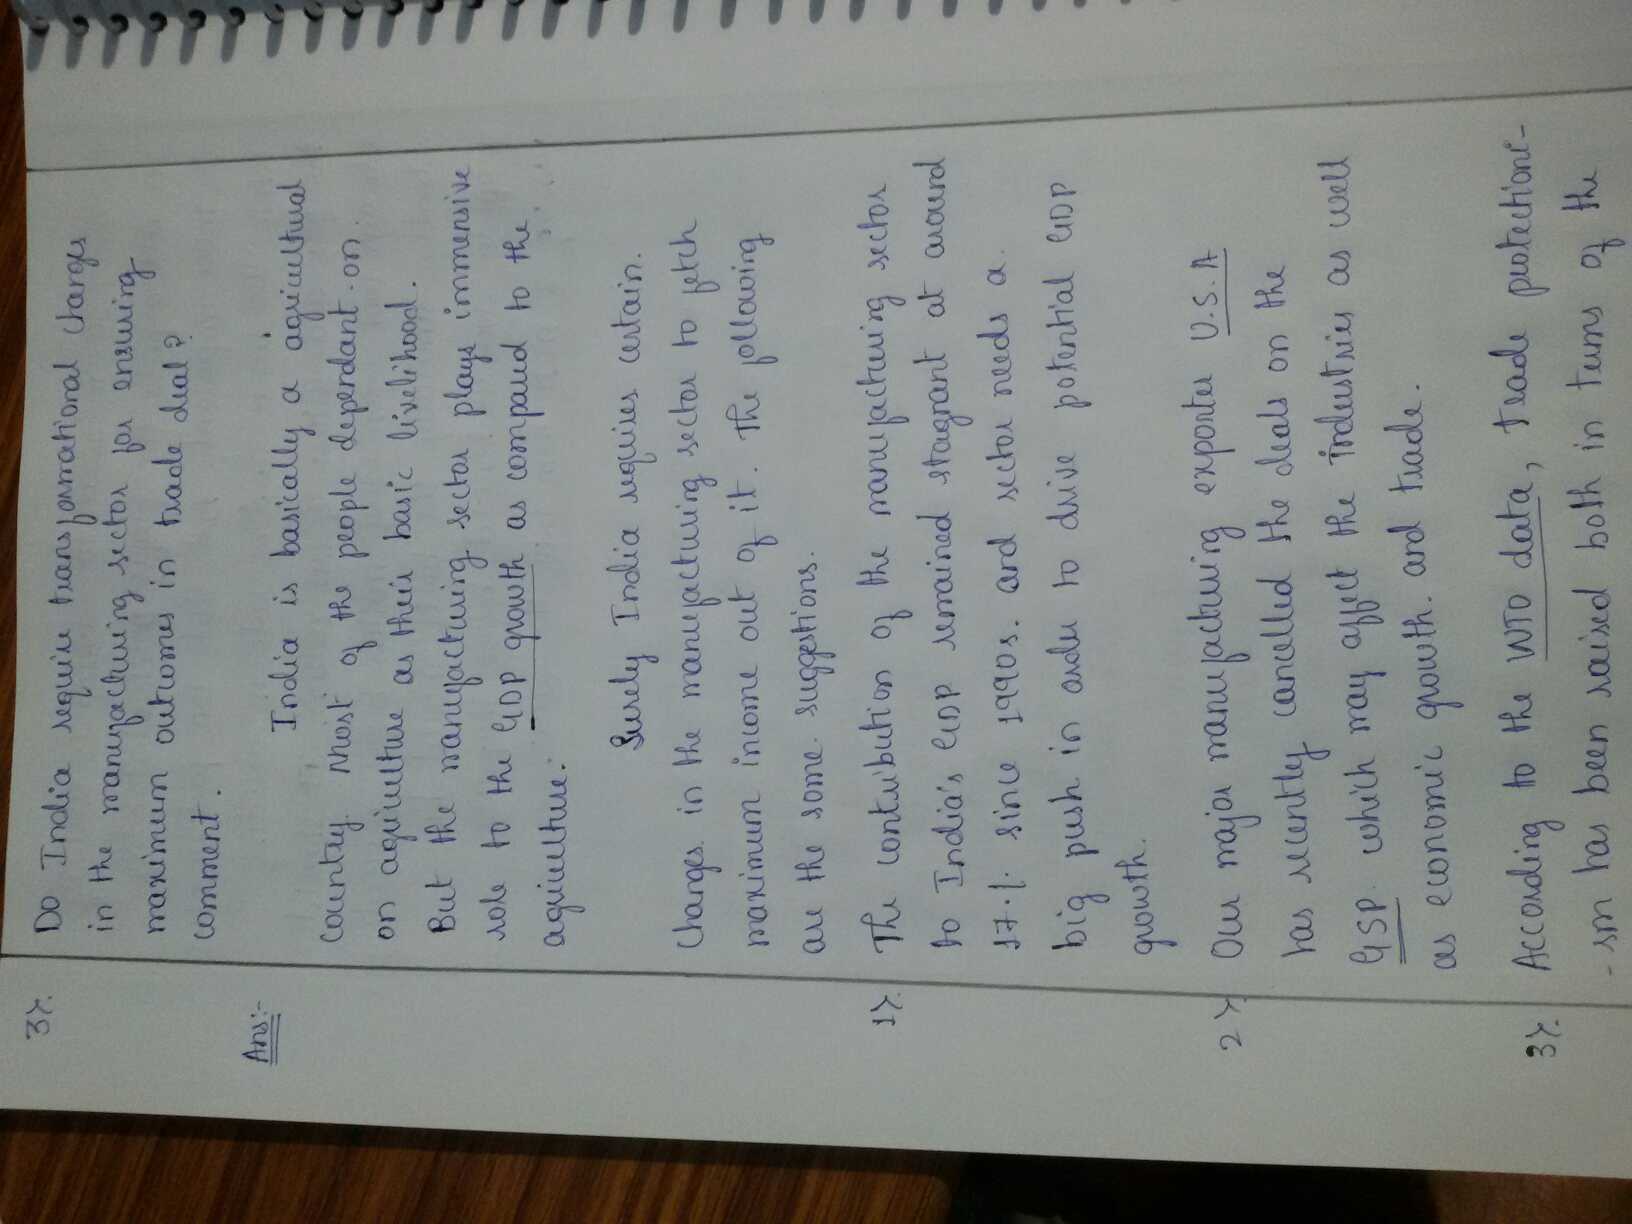 3). Do India require transformational changes
in the manufacturing sector for ensuring
maximum outcomes in trade deal?
comment.
Ans:- India is basically a agricultural
country. Most of the people dependant on
on agriculture as their basic livelihood.
But the manufacturing sector plays immensive
role to the GDP growth as compared to the
agriculture.
Surely India requires certain.
changes in the manufacturing sector to fetch
maximum income out of it. The following
are the some suggestions.
1). The contribution of the manufacturing sector
to India's GDP remained stagnant at around
17.1. since 1990s. and sector needs a.
big push in order to drive potential GDP
growth.
2). Our major manufacturing exporter U.S.A
has recently cancelled the deals on the
GSP. which may affect the industries as well
as economic growth. and trade.
3). According to the WTO data, trade protectioni-
-sm has been raised both in terms of the